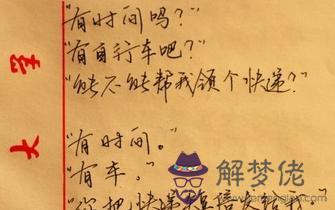 大学
"有时间吗?"
"有自行车吧?"
"能不能帮我领个快递?"
"有时间。"
"有车。"
"你把快递
给我。"
解梦佬